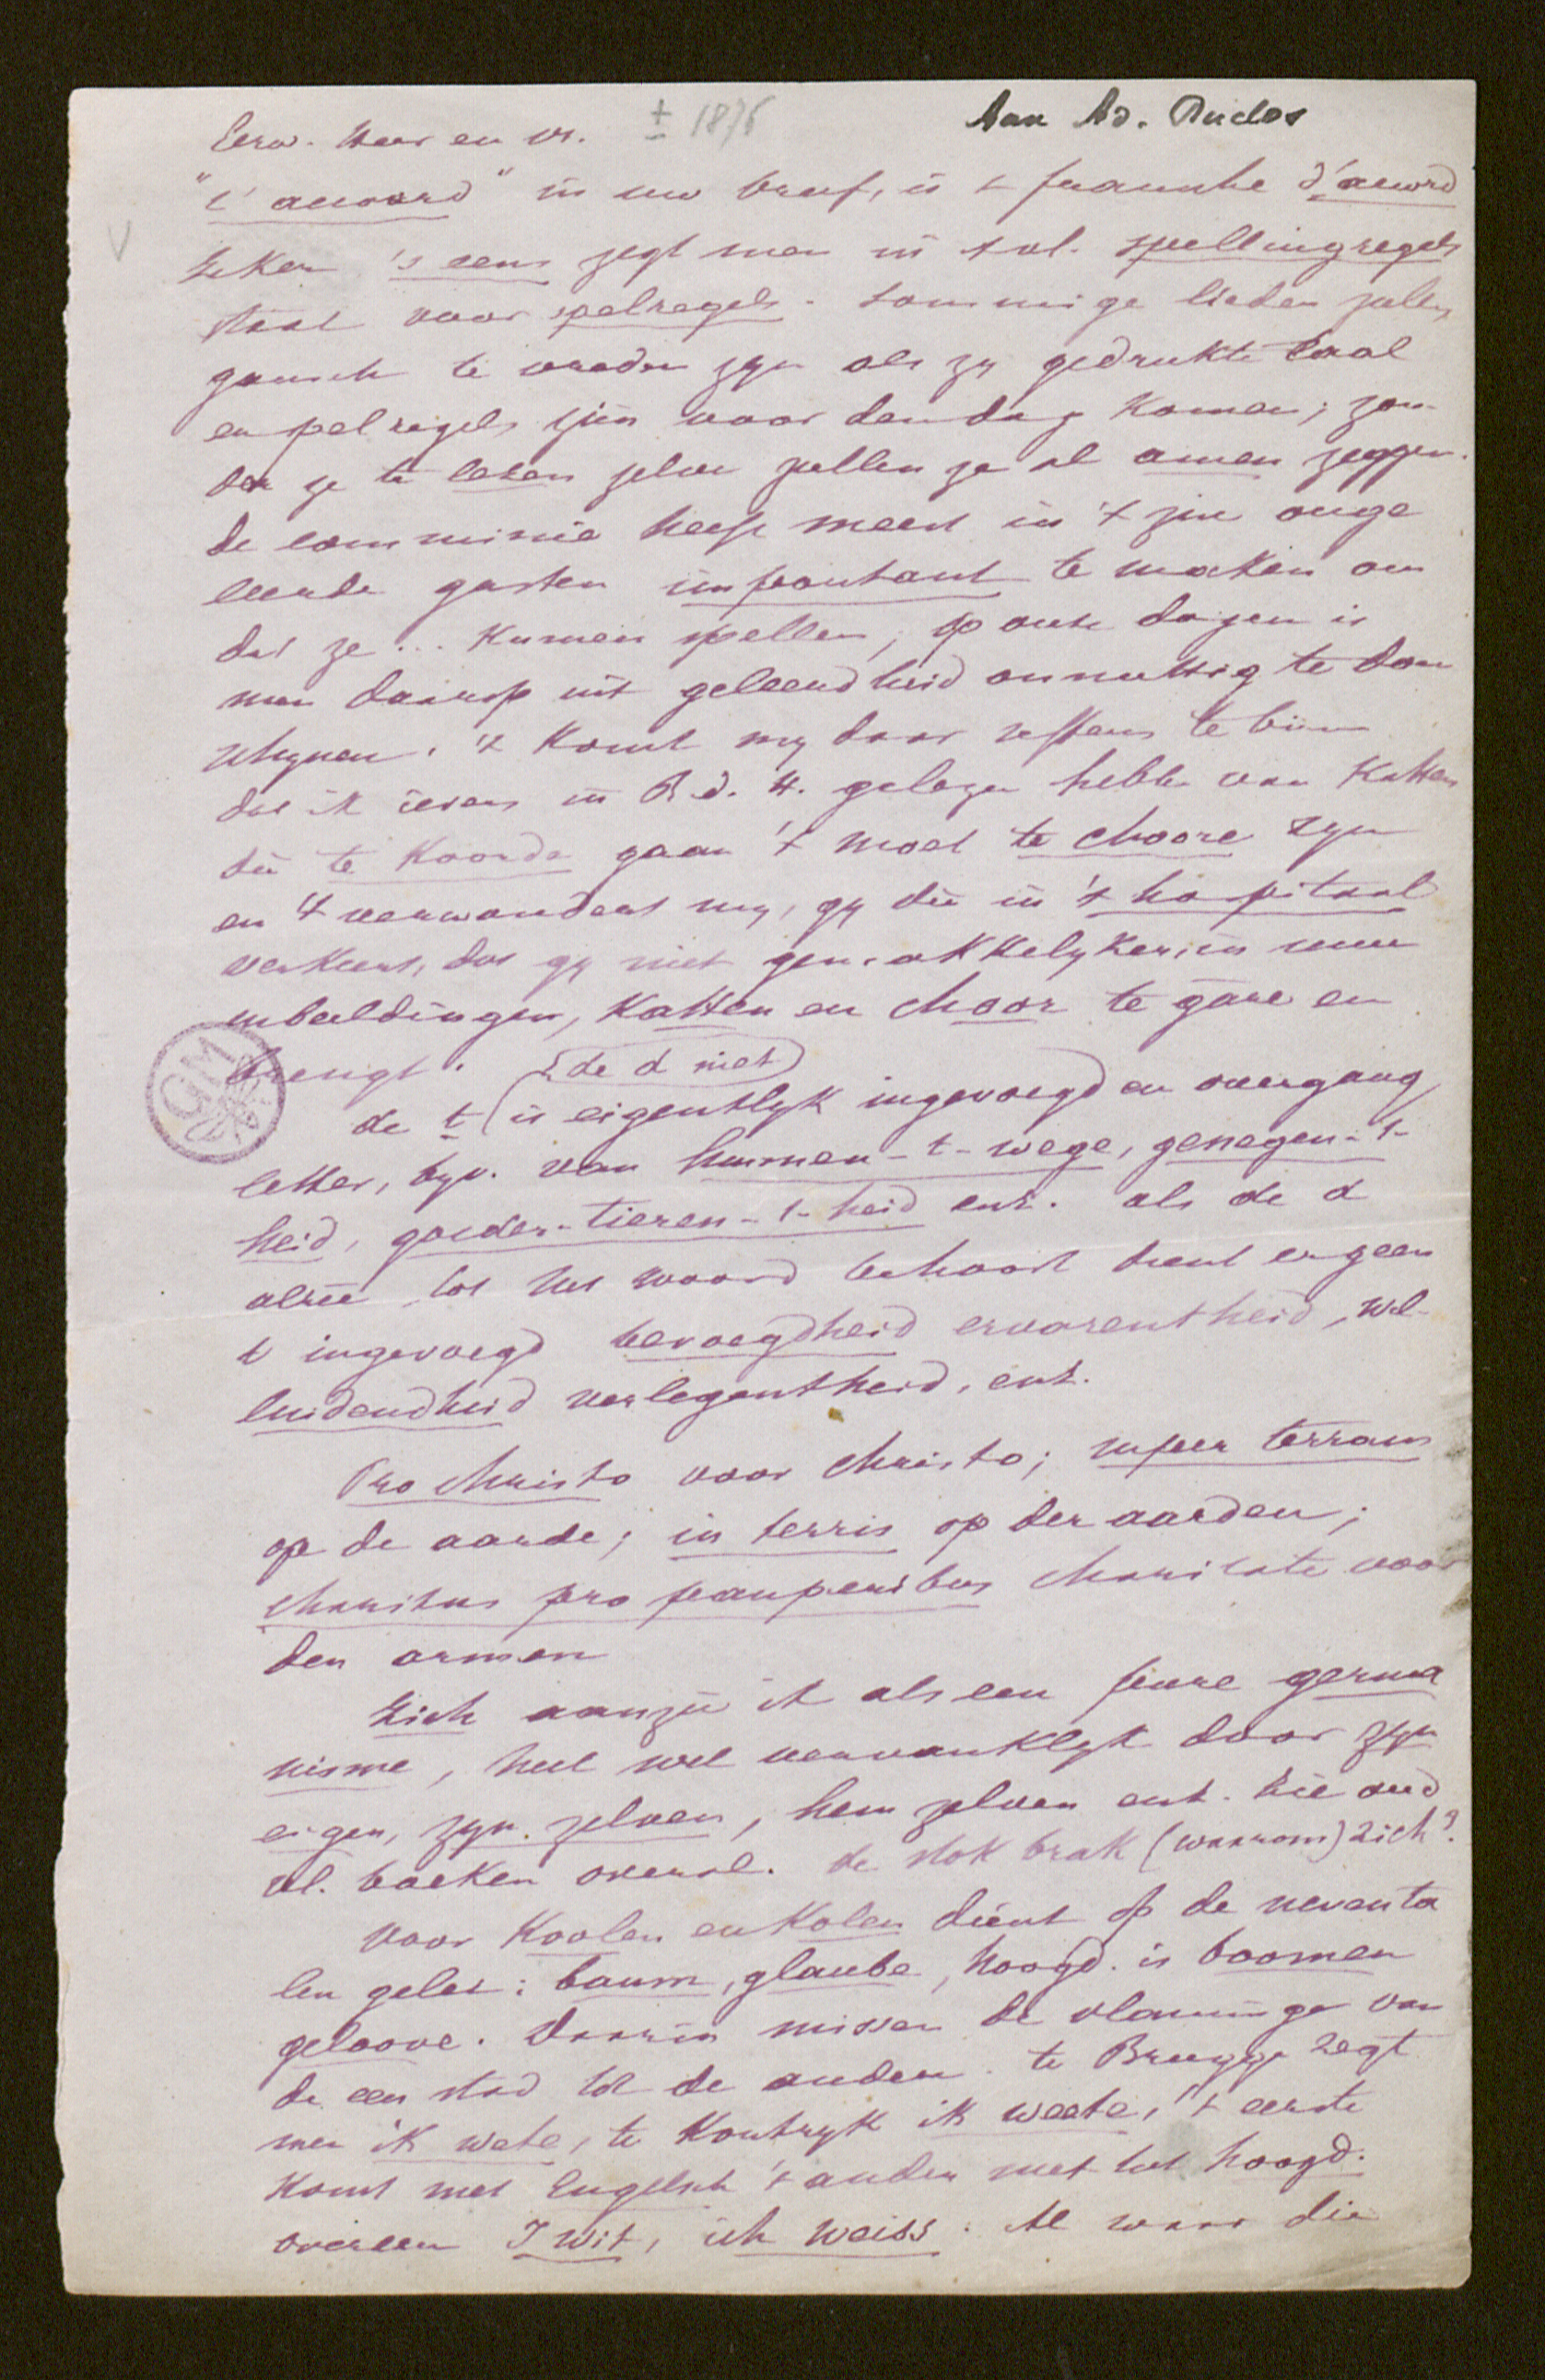 ± 1876
Aan Ad. Duclos
Eerw. Heer en Vr.
"t' accoord" in uw brief, is 't fransche d'accord
zeker 's eens zegt men in 't vl. spellingregels
staat voor spelregels. Sommige lieden zullen
gansch te vreden zyn als zy gedrukte taal
en spelregels zien voor den dag komen; zon-
der ze te lezen zelve zullen ze al amen zeggen.
de commissie heeft meest in 't zin onge
leerde gasten important te maken om
dat ze... kunnen spellen, op onze dagen is
men daarop uit geleerdheid onnuttig te doen
schynen. 't komt my daar seffens te binn
dat ik ievers in R.d.H. gelezen hebbe van Katten
die te koorde gaan 't moet te choore zyn
en 't verwondert my, gy die in 't hospitaal
verkeert, dat gy niet gemakkelyker, in uwe
inbeeldingen, Katten en choor te gare en
brengt.
(de d niet)
GM
de t is eigentlyk ingevoegd en overgang
letter, byv. van hunnen-t-wege, genegen-t-
heid, goeder-tieren-t-heid enz. als de d
alree tot het woord behoort dient er geen
t ingevoegd bevoegdheid ervarentheid, wel-
luidendheid verlegentheid, enz.
Pro Christo voor Christo; super terram
op de aarde; in terris op der aarden;
charitas pro pauperibus charitate voor
den armen
Zich aanzie ik als een pure germa
nisme, heel wel vervanklyk door zyn
eigen, zyn zelven, hem zelven enz. zie oud
vl. boeken overal. de stok brak (waarom) zich?
voor Koolen en Kolen dient op de neventa
len gelet: baum, glaube, hoogd. is boomen
geloove. Daarin missen de vlamingen van
de een stad tot de andere. te Brugge zegt
men ik wete, te Kortryk ik weete, 't eerste
komt met Engelsch 't ander met het hoogd.
overeen I wit, ich weiss. Al waar die